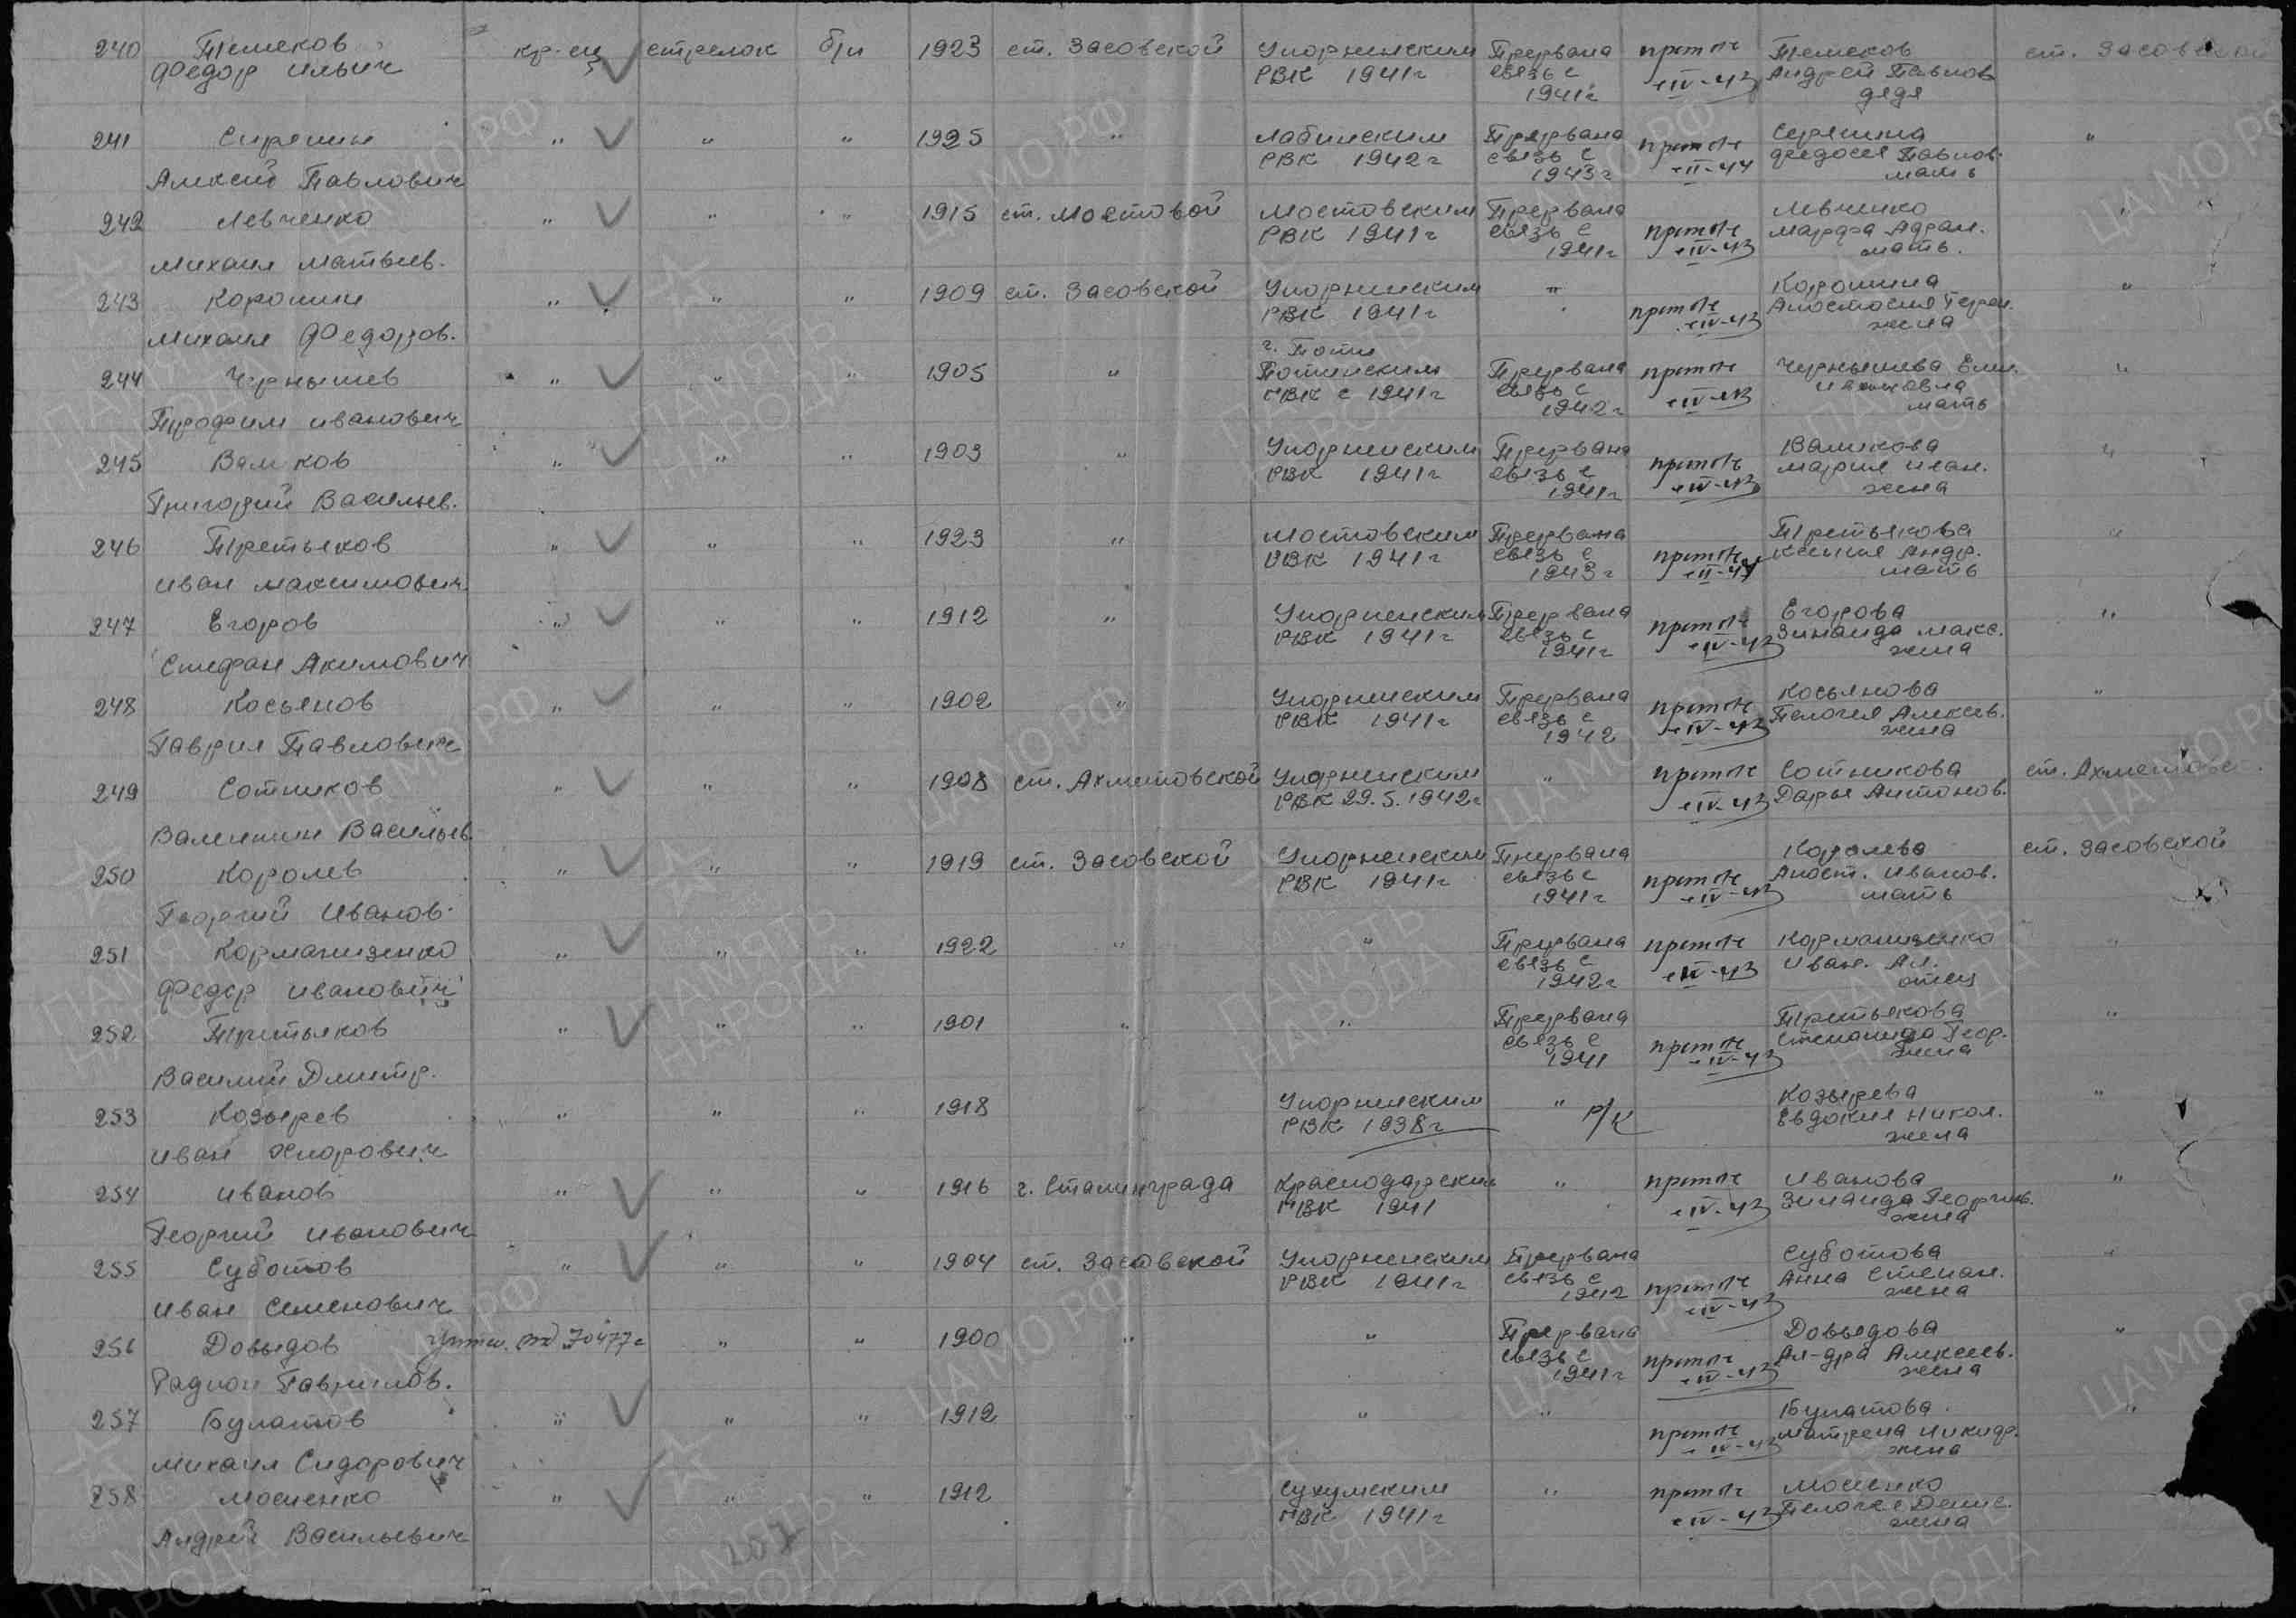 240 Темеков кр-ец стрелок б/п 1923 ст. Засовской Упорненским Прервана Темеков ст. Засовской
Федор Ильич РВК 1941г связь с IV-43 Андрей Павлов
1941г дядя
241 Сиряпин " " " 1925 " Лабинским Прервана "
РВК 1942г связь с II-44 Федосея Павлов.
Алексей Павлович 1943г мать
242 Левченко " " " 1915 ст. Мостовой Мостовским Прервана Левченко "
РВК 1941г связь с IV-43 Марфа Адрам.
Михаил Матвеев. 1941г мать.
243 " " " 1909 ст. Засовской Упорненским " "
РВК 1941г IV-43
Михаил Федоров. жена
г. Поти
244 Чернышев " " " 1905 " Потийским Прервана Чернышева "
РВК с 1941г связь с IV-43 Ивановна
Трофим Иванович 1942г мать
245 Валиков " " " 1903 " Упорненским Прервана Валикова "
РВК 1941г связь с IV-43 Мария
Григорий Васильев. 1941г жена
246 Третьяков " " " 1923 " Мостовским Прервана Третьякова "
РВК 1941г связь с Ксения Андр.
Иван Максимович 1943г мать
247 Егоров " " " 1912 " Упорненским Прервана Егорова "
РВК 1941г связь с IV-43 Зинаида Макс.
Стефан Акимович 1941г жена
248 Косьянов " " " 1902 " Упорненским Прервана Косьянова "
РВК 1941г связь с IV-43 Пелогея Алексев.
Гаврил Павлович 1942 жена
249 Сотников " " " 1908 ст. Ахметовской Упорненским " Сотникова ст. Ахметовс
РВК 29.5.1942г IV-43 Дарья Антонов.
Валентин Васильев.
250 Королев " " " 1919 ст. Засовской Упорненским Прервана Королева ст. Засовской
РВК 1941г связь с IV-43 Анаст. Иванов.
Георгий Иванов. 1941г мать
251 " " " 1922 " " Прервана "
связь с IV-43 Иван. Ал.
Федор Иванович 1942г отец
252 Третьяков " " " 1901 " " Прервана Третьякова "
связь с IV-43 Степанида Геор.
Василий Дмитр. 1941 жена
253 Козырев " " " 1918 " Упорненским " Р/К Козырева "
РВК 1938г Евдокия Никол.
Иван жена
254 Иванов " " " 1916 г. Сталинграда Краснодарским " Иванова "
РВК 1941 IV-43 Зинаида Георгиев.
Георгий Иванович жена
255 Суботов " " " 1904 ст. Засовской Упорненским Прервана Суботова "
РВК 1941г связь с IV-43 Анна Степан.
Иван Семенович 1942 жена
256 Довыдов 70477с " " 1900 " " Прервана Довыдова "
связь с IV-43 Ал-дра Алексеев.
Радион Гаврилов. 1941г жена
257 Булатов " " " 1912 " " " Булатова "
IV-43 Матрена Никифр.
Михаил Сидорович жена
258 Мосиенко " " " 1912 " Сухумским " Мосиенко
РВК 1941г IV-43 Пелогея Денис.
Андрей Васильевич жена
207